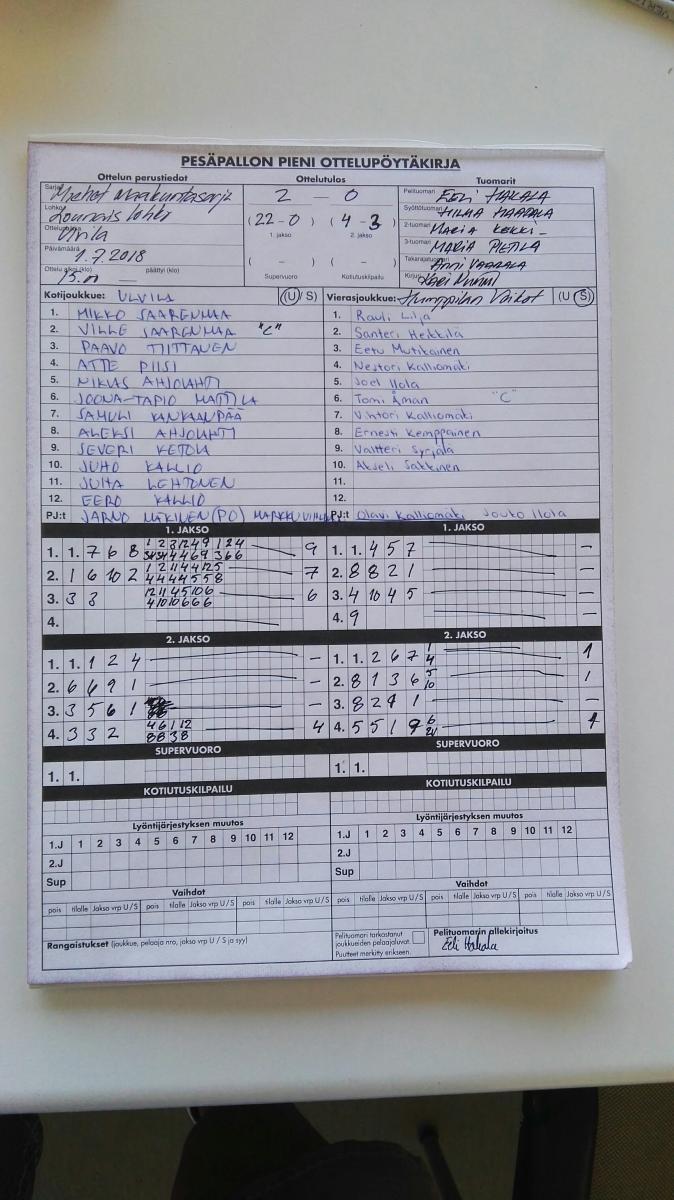 PESÄPALLON PIENI OTTELUPÖYTÄKIRJA
Ottelun perustiedot Ottelutulos Tuomarit
Sarja Miehet Maakuntasarja 2 — 0 Pelituomari EELI HAKALA
Lohko Lounais lohko (22-0) (4-3) Syöttötuomari HILMA HAAPALA
1. jakso 2. jakso
Ulvila 2-tuomari MARIA KEKKI
Päivämäärä 1.7.2018 3-tuomari MARIA PIETILÄ
( - ) ( - ) Takarajatuomari Anni VAARALA
Ottelu alkoi (klo) 15.01 päättyi (klo) — Supervuoro Kotiutuskilpailu Kirjuri
Kotijoukkue: ULVILA (U/S) Vierasjoukkue: Humppilan Veikot (U/S)
1. MIKKO SAARENMAA 1. Rauli Lilja
2. VILLE SAARENMAA "C" 2. Santeri Heikkilä
3. PAAVO TIITTANEN 3. Eetu Mutikainen
4. ATTE PIISI 4. Nestori Kalliomäki
5. NIKLAS AHJOLAHTI 5. Joel Ilola
6. JOONA-TAPIO MATTILA 6. Tomi Åman "C"
7. SAMULI KANKAANPÄÄ 7. Vihtori Kalliomäki
8. ALEKSI AHJOLAHTI 8. Ernesti Kemppainen
9. SEVERI KETOLA 9. Valtteri Syrjälä
10. JUHO KALLIO 10. Akseli Sakkinen
11. JUHA LEHTONEN 11.
12. EERO KALLIO 12.
PJ:t JARNO MÄKINEN (PO) PJ:t Olavi Kalliomäki Jouko Ilola
1. JAKSO 1. JAKSO
1. 1. 7 6 8 9 1. 1. 4 5 7 –
2. 1 6 10 2 7 2. 8 8 2 1 –
3. 3 3 6 3. 4 10 4 5 –
4. 4. 9 –
2. JAKSO 2. JAKSO
1. 1. 1 2 4 – 1. 1. 2 6 7 1 4 1
2. 6 6 9 1 – 2. 8 1 3 6 5 10 1
3. 3 5 6 1 – 3. 8 2 9 1 –
4. 3 3 2 4 6 1 12 8 8 3 8 4 4. 5 5 1 9 1
SUPERVUORO SUPERVUORO
1. 1. 1. 1.
KOTIUTUSKILPAILU KOTIUTUSKILPAILU
Lyöntijärjestyksen muutos Lyöntijärjestyksen muutos
1.J 1 2 3 4 5 6 7 8 9 10 11 12 1.J 1 2 3 4 5 6 7 8 9 10 11 12
2.J 2.J
Sup Sup
Vaihdot Vaihdot
pois tilalle Jakso vrp U/S pois tilalle Jakso vrp U/S pois tilalle Jakso vrp U/S pois tilalle Jakso vrp U/S pois tilalle Jakso vrp U/S pois tilalle Jakso vrp U/S
Rangaistukset (joukkue, pelaaja nro, jakso vrp U / S ja syy) Pelituomari tarkastanut joukkueiden pelaajaluvat. Pelituomarin allekirjoitus
Puutteet merkitty erikseen. Eeli Hakala